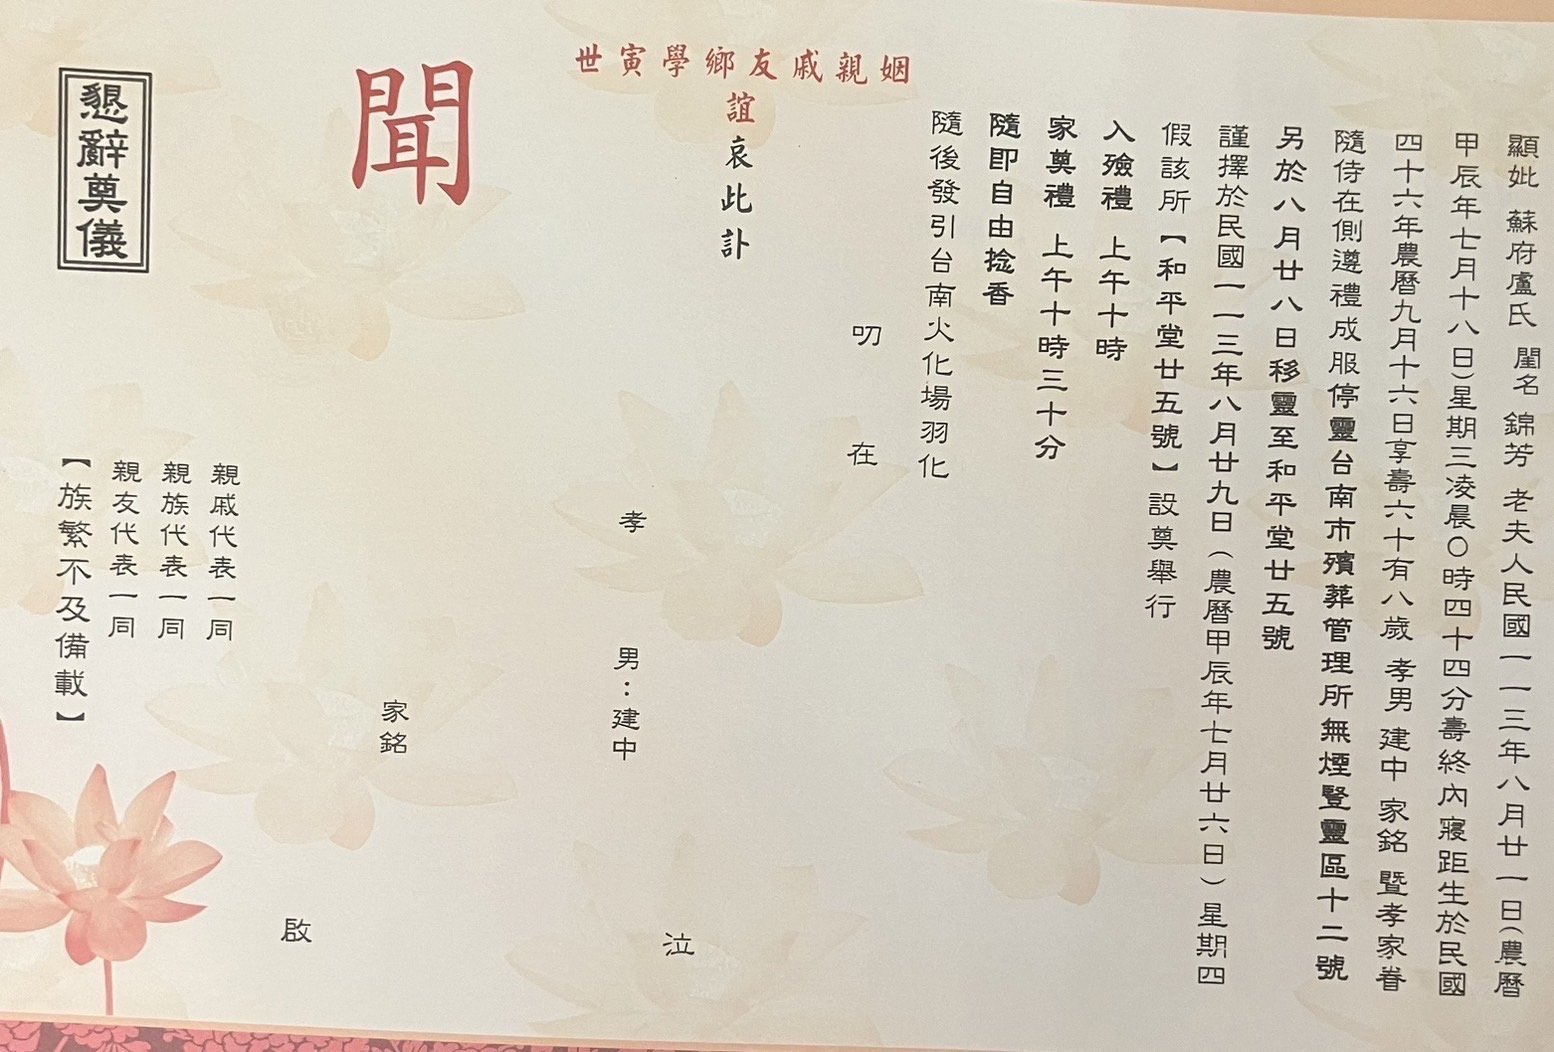 顯妣 蘇府盧氏 閨名 錦芳 老夫人民國一一三年八月廿一日(農曆
甲辰年七月十八日)星期三凌晨〇時四十四分壽終內寢距生於民國
四十六年農曆九月十六日享壽六十有八歲 孝男 建中 家銘 暨孝家眷
隨侍在側遵禮成服停靈台南市殯葬管理所無煙豎靈區十二號
另於八月廿八日移靈至和平堂廿五號
謹擇於民國一一三年八月廿九日(農曆甲辰年七月廿六日)星期四
假該所【和平堂廿五號】設奠舉行
入殮禮 上午十時
家奠禮 上午十時三十分
隨即自由捻香
隨後發引台南火化場羽化
叨 在
姻親戚友鄉學寅世
誼哀此訃
泣
孝 男:建中
聞
家銘
啟
親戚代表一同
親族代表一同
親友代表一同
【族繁不及備載】
懇辭奠儀